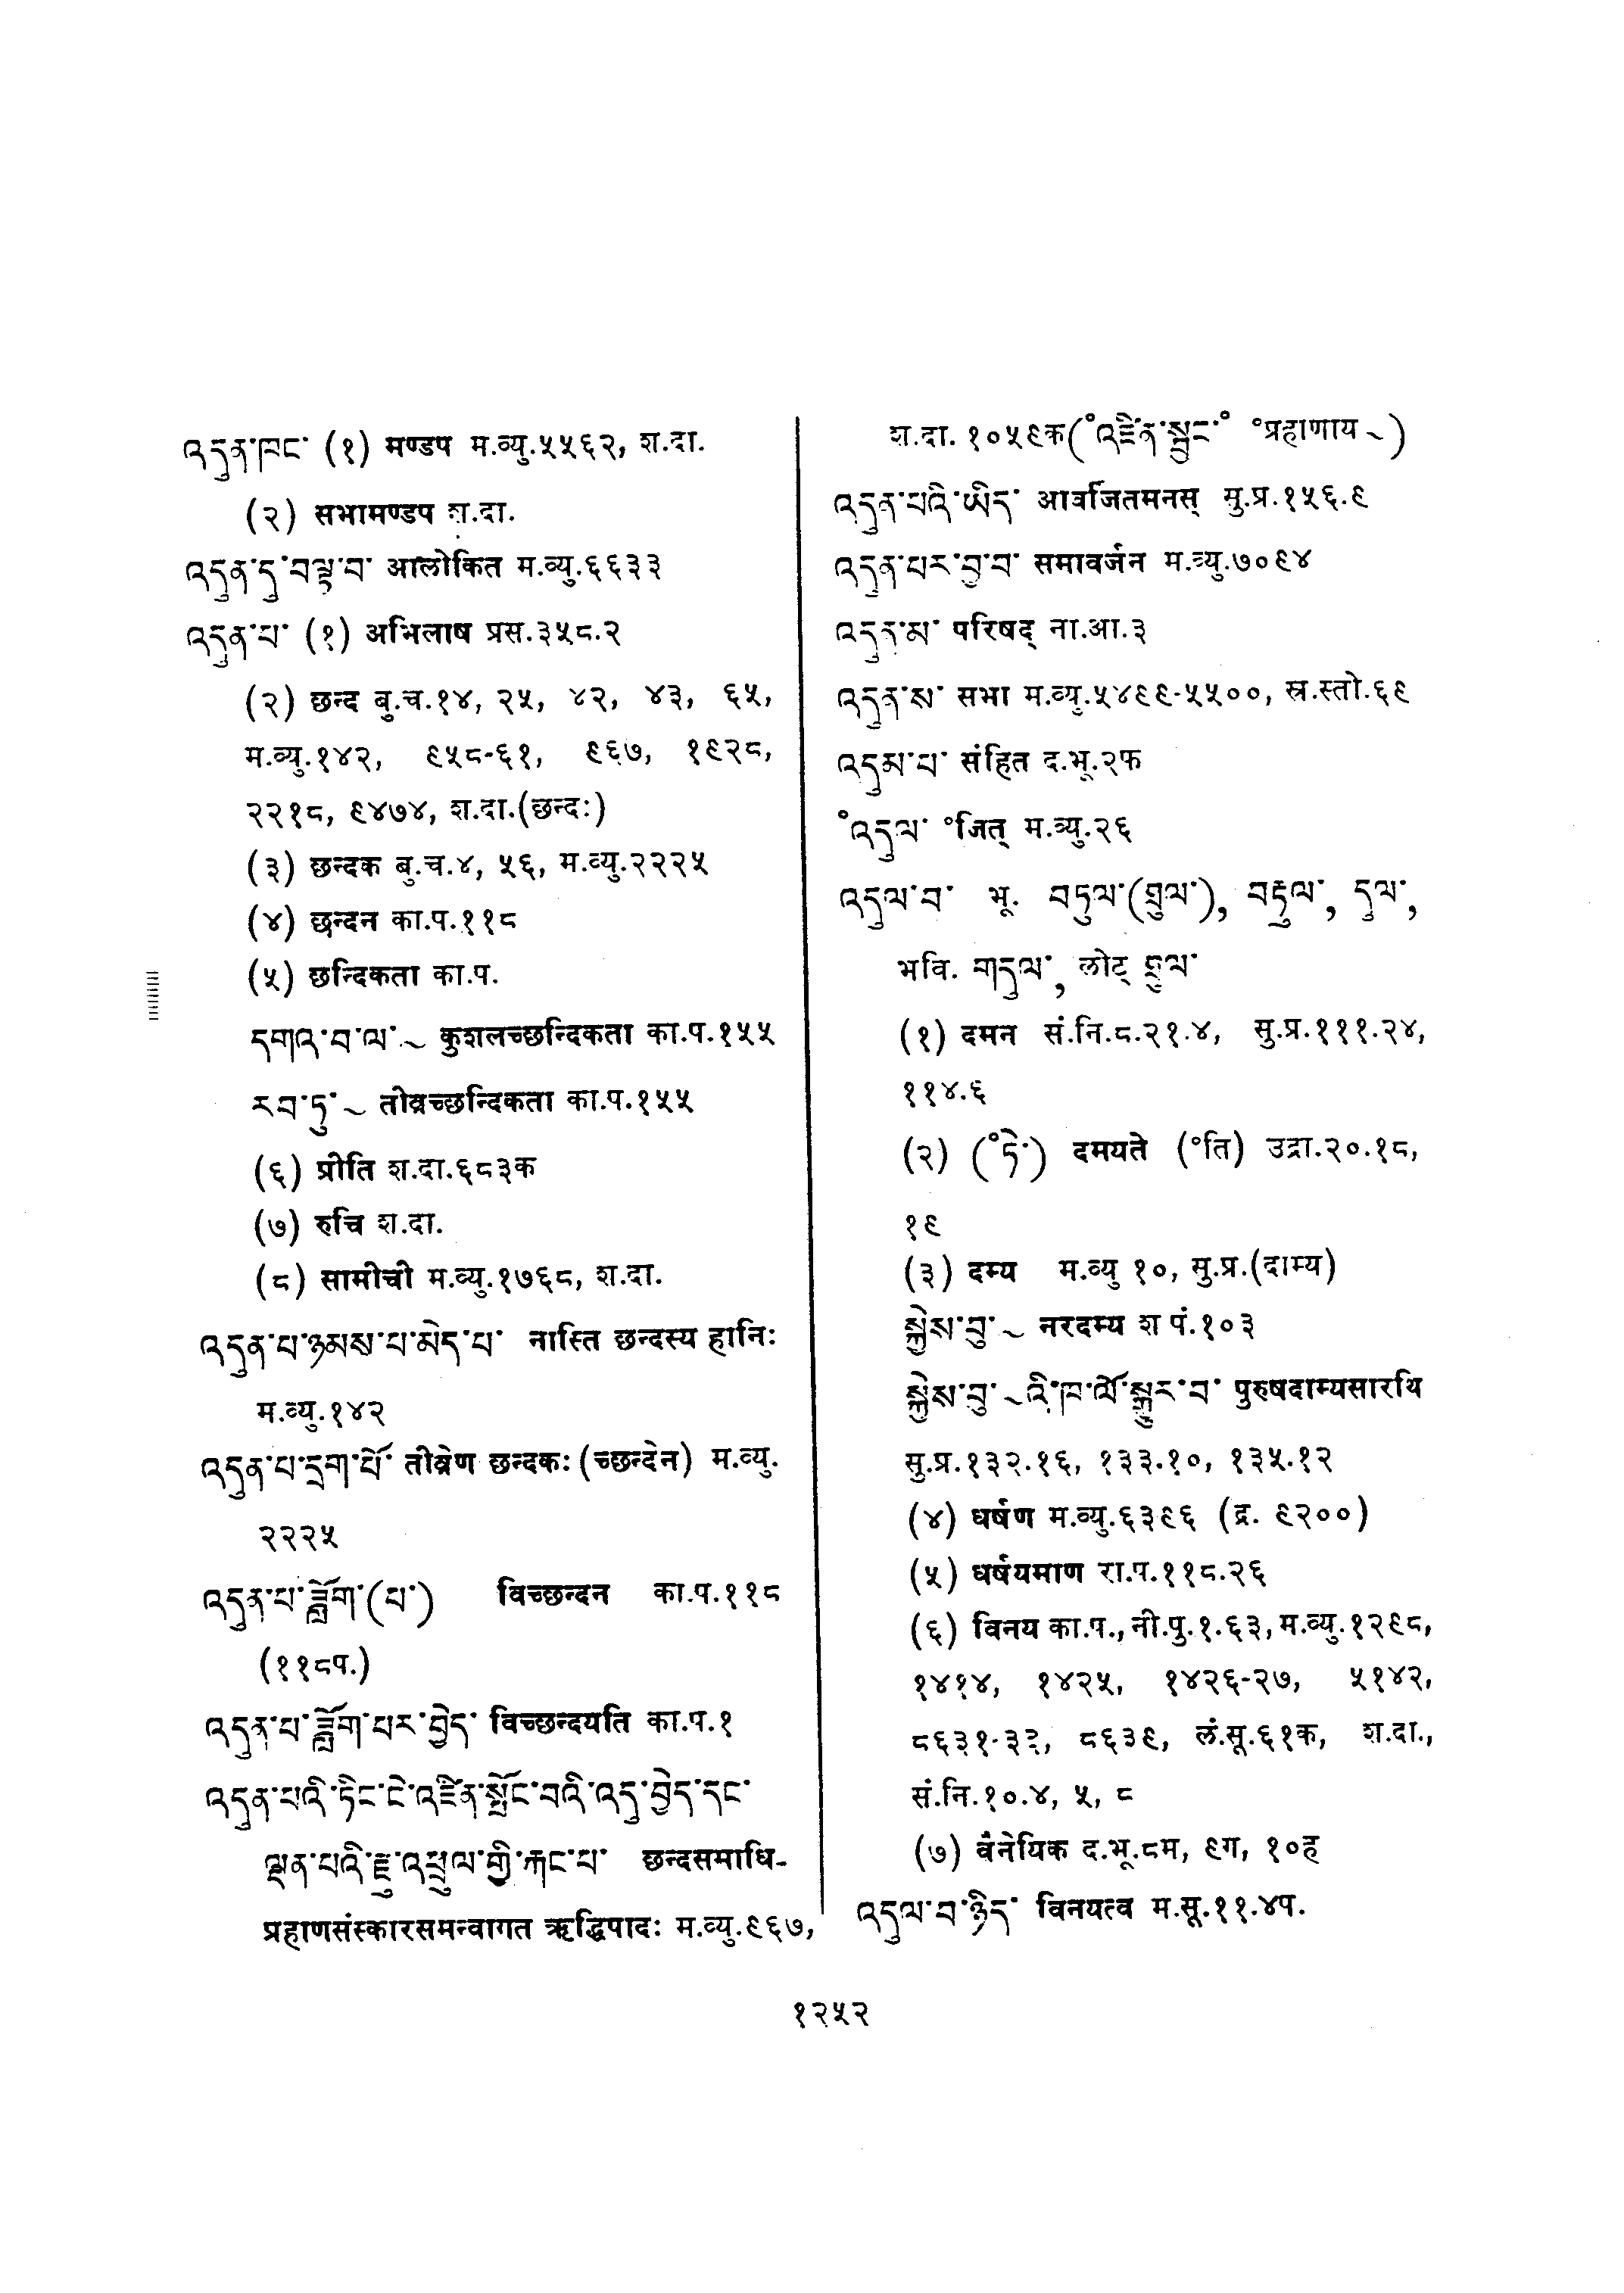 འདུན་ཁང་ (१) मण्डप म.व्यु.५५६२, श.दा.
(२) सभामण्डप श.दा.
འདུན་དུ་བལྟ་བ་ आलोकित म.व्यु.६६३३
འདུན་པ་ (१) अभिलाष प्रस.३५८.२
(२) छन्द बु.च.१४, २५, ४२, ४३, ६५,
म.व्यु.१४२, ९५८-६१, ९६७, १९२८,
२२१८, ९४७४, श.दा.(छन्दः)
(३) छन्दक बु.च.४, ५६, म.व्यु.२२२५
(४) छन्दन का.प.११८
(५) छन्दिकता का.प.
དགའ་བ་ལ་ ~ कुशलच्छन्दिकता का.प.१५५
རབ་ཏུ་ ~ तीव्रच्छन्दिकता का.प.१५५
(६) प्रीति श.दा.६८३क
(७) रुचि श.दा.
(८) सामीची म.व्यु.१७६८, श.दा.
འདུན་པ་ཉམས་པ་མེད་པ་ नास्ति छन्दस्य हानिः
म.व्यु.१४२
འདུན་པ་དྲག་པོ་ तीव्रेण छन्दकः (च्छन्देन) म.व्यु.
२२२५
འདུན་པ་ཟློག་(པ་) विच्छन्दन का.प.११८
(११८प.)
འདུན་པ་ཟློག་པར་བྱེད་ विच्छन्दयति का.प.१
འདུན་པའི་ཏིང་ངེ་འཛིན་སྤོང་བའི་འདུ་བྱེད་དང་
ལྡན་པའི་རྫུ་འཕྲུལ་གྱི་རྐང་པ་ छन्दसमाधि-
प्रहाणसंस्कारसमन्वागत ऋद्धिपादः म.व्यु.९६७,
श.दा. १०५९क(°འཛིན་སྤྲང་° °प्रहाणाय ~)
འདུན་པའི་ཡིད་ आवर्जितमनस् सु.प्र.१५६.९
འདུན་པར་བྱ་བ་ समावर्जन म.व्यु.७०९४
འདུན་མ་ परिषद् ना.आ.३
འདུན་ས་ सभा म.व्यु.५४९९-५५००, स्र.स्तो.६९
འདུམ་པ་ संहित द.भू.२फ
°འདུལ་ °जित् म.व्यु.२६
འདུལ་བ་ भू. བཏུལ་(གྲུལ་), བརྡུལ་, དུལ་,
भवि. གདུལ་, लोट् ཐུལ་
(१) दमन सं.नि.८.२१.४, सु.प्र.१११.२४,
११४.६
(२) (°ཏེ་) दमयते (°ति) उद्रा.२०.१८,
१९
(३) दम्य म.व्यु १०, सु.प्र.(दाम्य)
སྐྱེས་བུ་ ~ नरदम्य श पं.१०३
སྐྱེས་བུ་ ~འི་ཁ་ལོ་སྒྱུར་བ་ पुरुषदाम्यसारथि
सु.प्र.१३२.१६, १३३.१०, १३५.१२
(४) धर्षण म.व्यु.६३९६ (द्र. ९२००)
(५) धर्षयमाण रा.प.११८.२६
(६) विनय का.प., नी.पु.१.६३, म.व्यु.१२९८,
१४१४, १४२५, १४२६-२७, ५१४२,
८६३१-३२, ८६३९, लं.सू.६१क, श.दा.,
सं.नि.१०.४, ५, ८
(७) वैनेयिक द.भू.८म, ९ग, १०ह
འདུལ་བ་ཉིད་ विनयत्व म.सू.११.४प.
१२५२